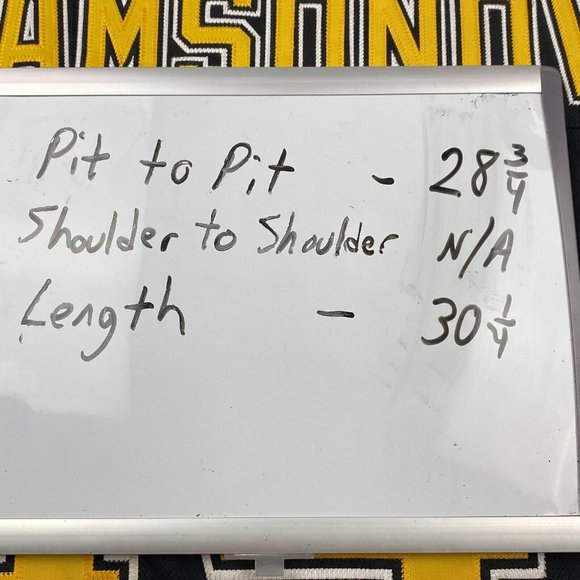 AMSON
Pit to Pit - 28 3/4
Shoulder to Shoulder N/A
Length - 30 1/4